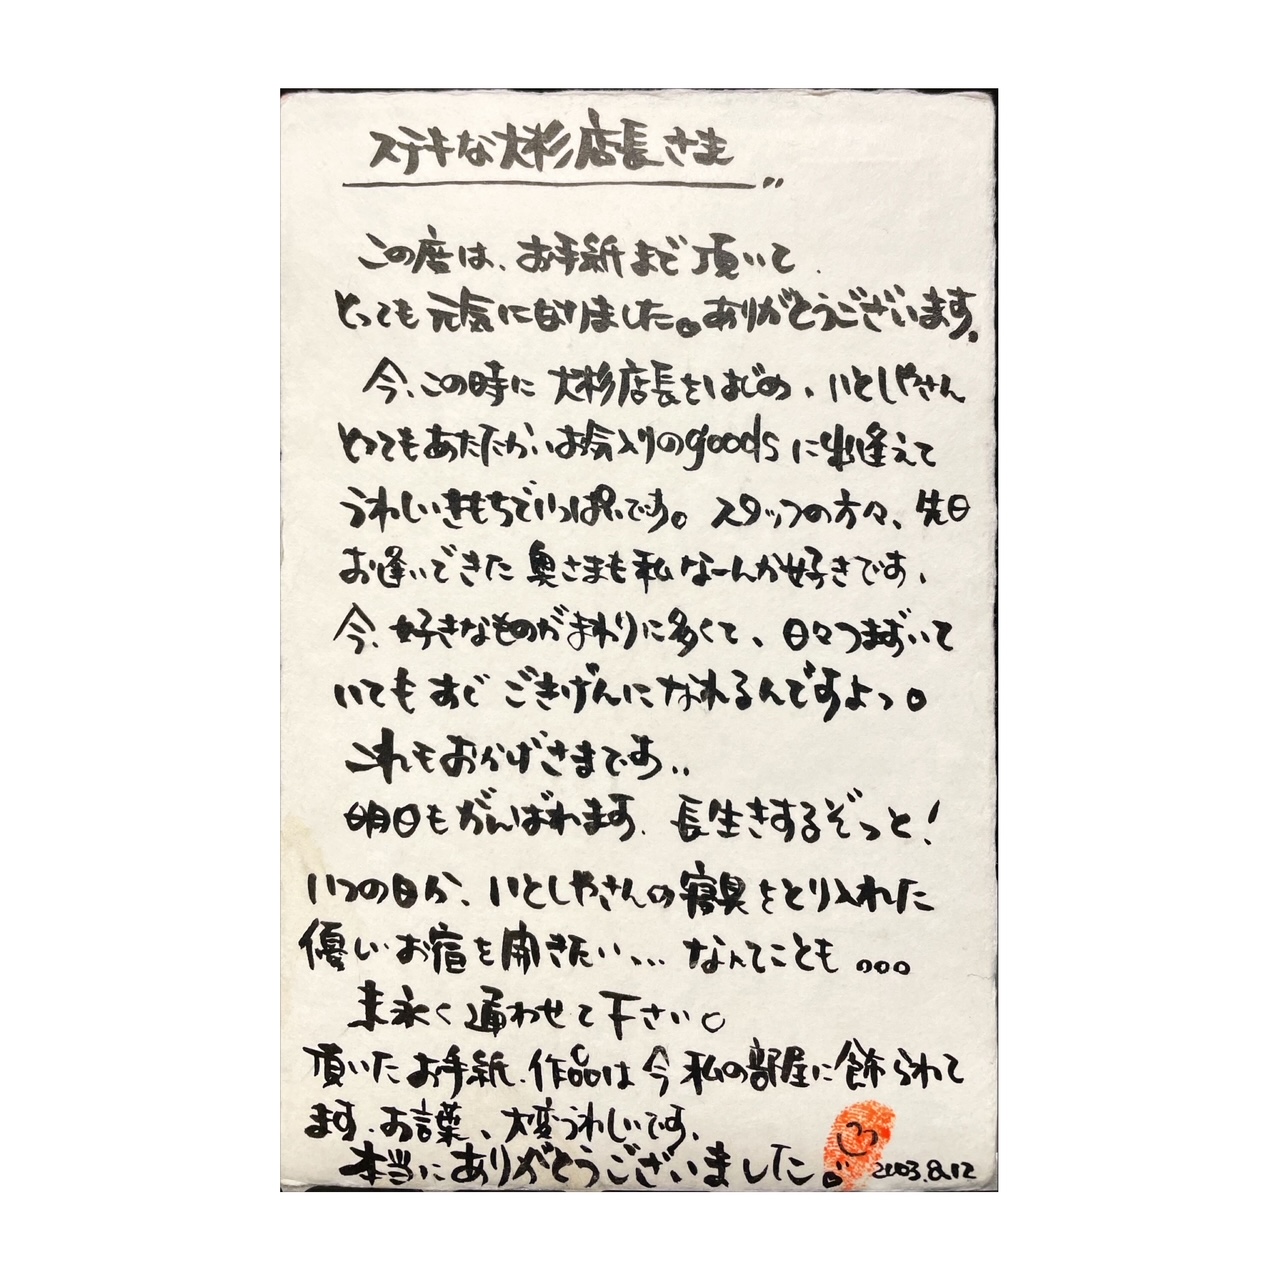 ステキな大杉店長さま
この度は、お手紙まで頂いて
とっても元気になりました。ありがとうございます。
今、この時に大杉店長をはじめ、いとしやさん
とってもあたたかいお念入りのgoodsに出逢えて
うれしいきもちでいっぱいです。スタッフの方々、先日
お逢いできた奥さまも私なーんか好きです、
今、好きなものがまわりに多くて、日々つまずいて
いてもすぐごきげんになれるんですよっ。
これもおかげさまです..
明日もがんばれます、長生きするぞっと!
いつの日か、いとしやさんの寝具をとり入れた
優しいお宿を開きたい、... なんてことも 。。。
末永く通わせて下さい。
頂いたお手紙、作品は今私の部屋に飾られて
ます、お言葉、大変うれしいです、
本当にありがとうございました。
2003.8.12